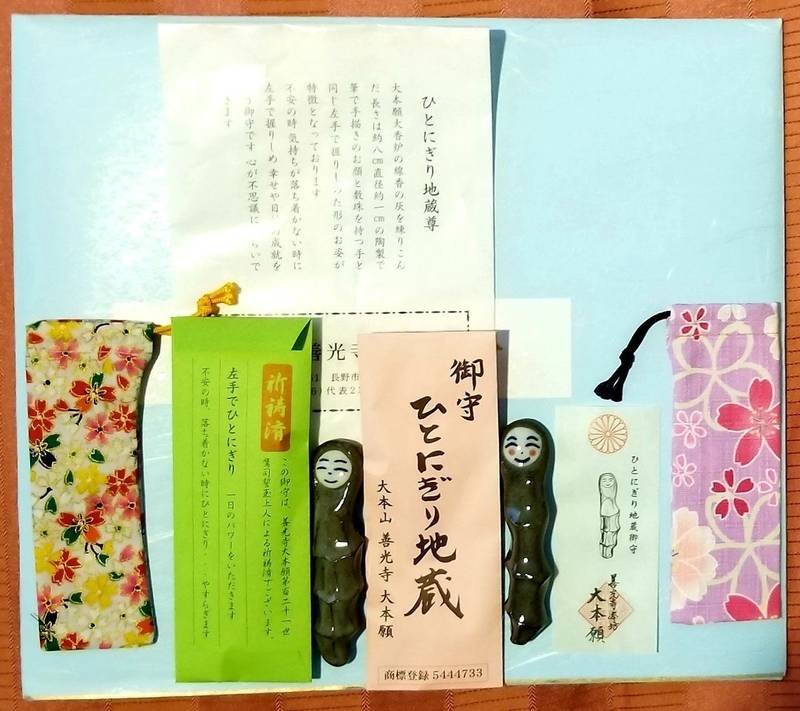 ひとにぎり地蔵尊
大本願大香炉の線香の灰を練りこん
だ 長さは約八cm 直径約一cmの陶製で
筆で手描きのお顔と数珠を持つ手と
同じ左手で握りしった形のお姿が
特徴となっております
不安の時 気持ちが落ち着かない時に
左手で握りしめ 幸せや目 の成就を
う御守です 心が不思議に らいで
きます
善光寺
長野市
代表2
祈祷済
この御守は、善光寺大本願第百二十一世
鷹司誓玉上人による祈祷済でございます。
左手でひとにぎり 一日のパワーをいただきます
不安の時、落ち着かない時にひとにぎり・・・やすらぎます
御守
ひとにぎり地蔵
大本山 善光寺 大本願
商標登録 5444733
ひとにぎり地蔵御守
大本願